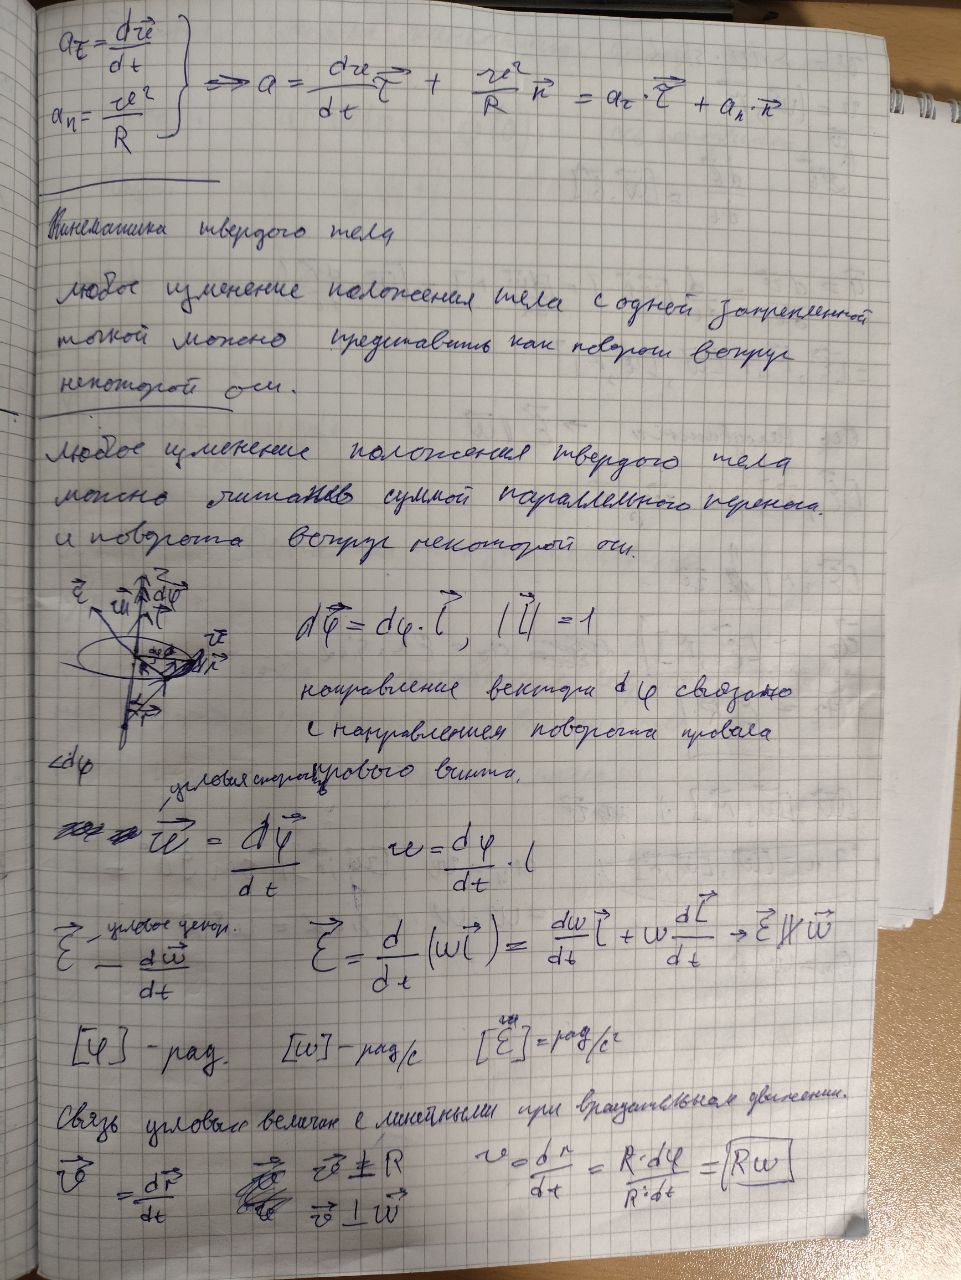 a_τ = dv⃗/dt
a_n = v²/R
} => a = dv/dt τ⃗ + v²/R n⃗ = a_τ · τ⃗ + a_n · n⃗
Кинематика твердого тела
любое изменение положения тела с одной закрепленной
точкой можно представить как поворот вокруг
некоторой оси.
любое изменение положения твердого тела
можно считать суммой параллельного переноса
и поворота вокруг некоторой оси.
z
ε⃗ w⃗ dφ⃗
l⃗
v⃗
R
r⃗
<dφ
dφ⃗ = dφ · l⃗, |l⃗| = 1
направление вектора dφ связано
с направлением поворота правала
правого винта.
угловая скорость
w⃗ = dφ⃗/dt w = dφ/dt · l
ε⃗ – угловое ускор.
– dw⃗/dt
ε⃗ = d/dt (wl⃗) = dw/dt l⃗ + w dl⃗/dt → ε⃗ ∦ w⃗
[φ] – рад. [w] – рад/с [ε⃗] = рад/с²
Связь угловых величин с линейными при вращательном движении.
v⃗ = dr⃗/dt v⃗ ⊥ R v = dr/dt = R·dφ/R·dt = Rw
v⃗ ⊥ w⃗